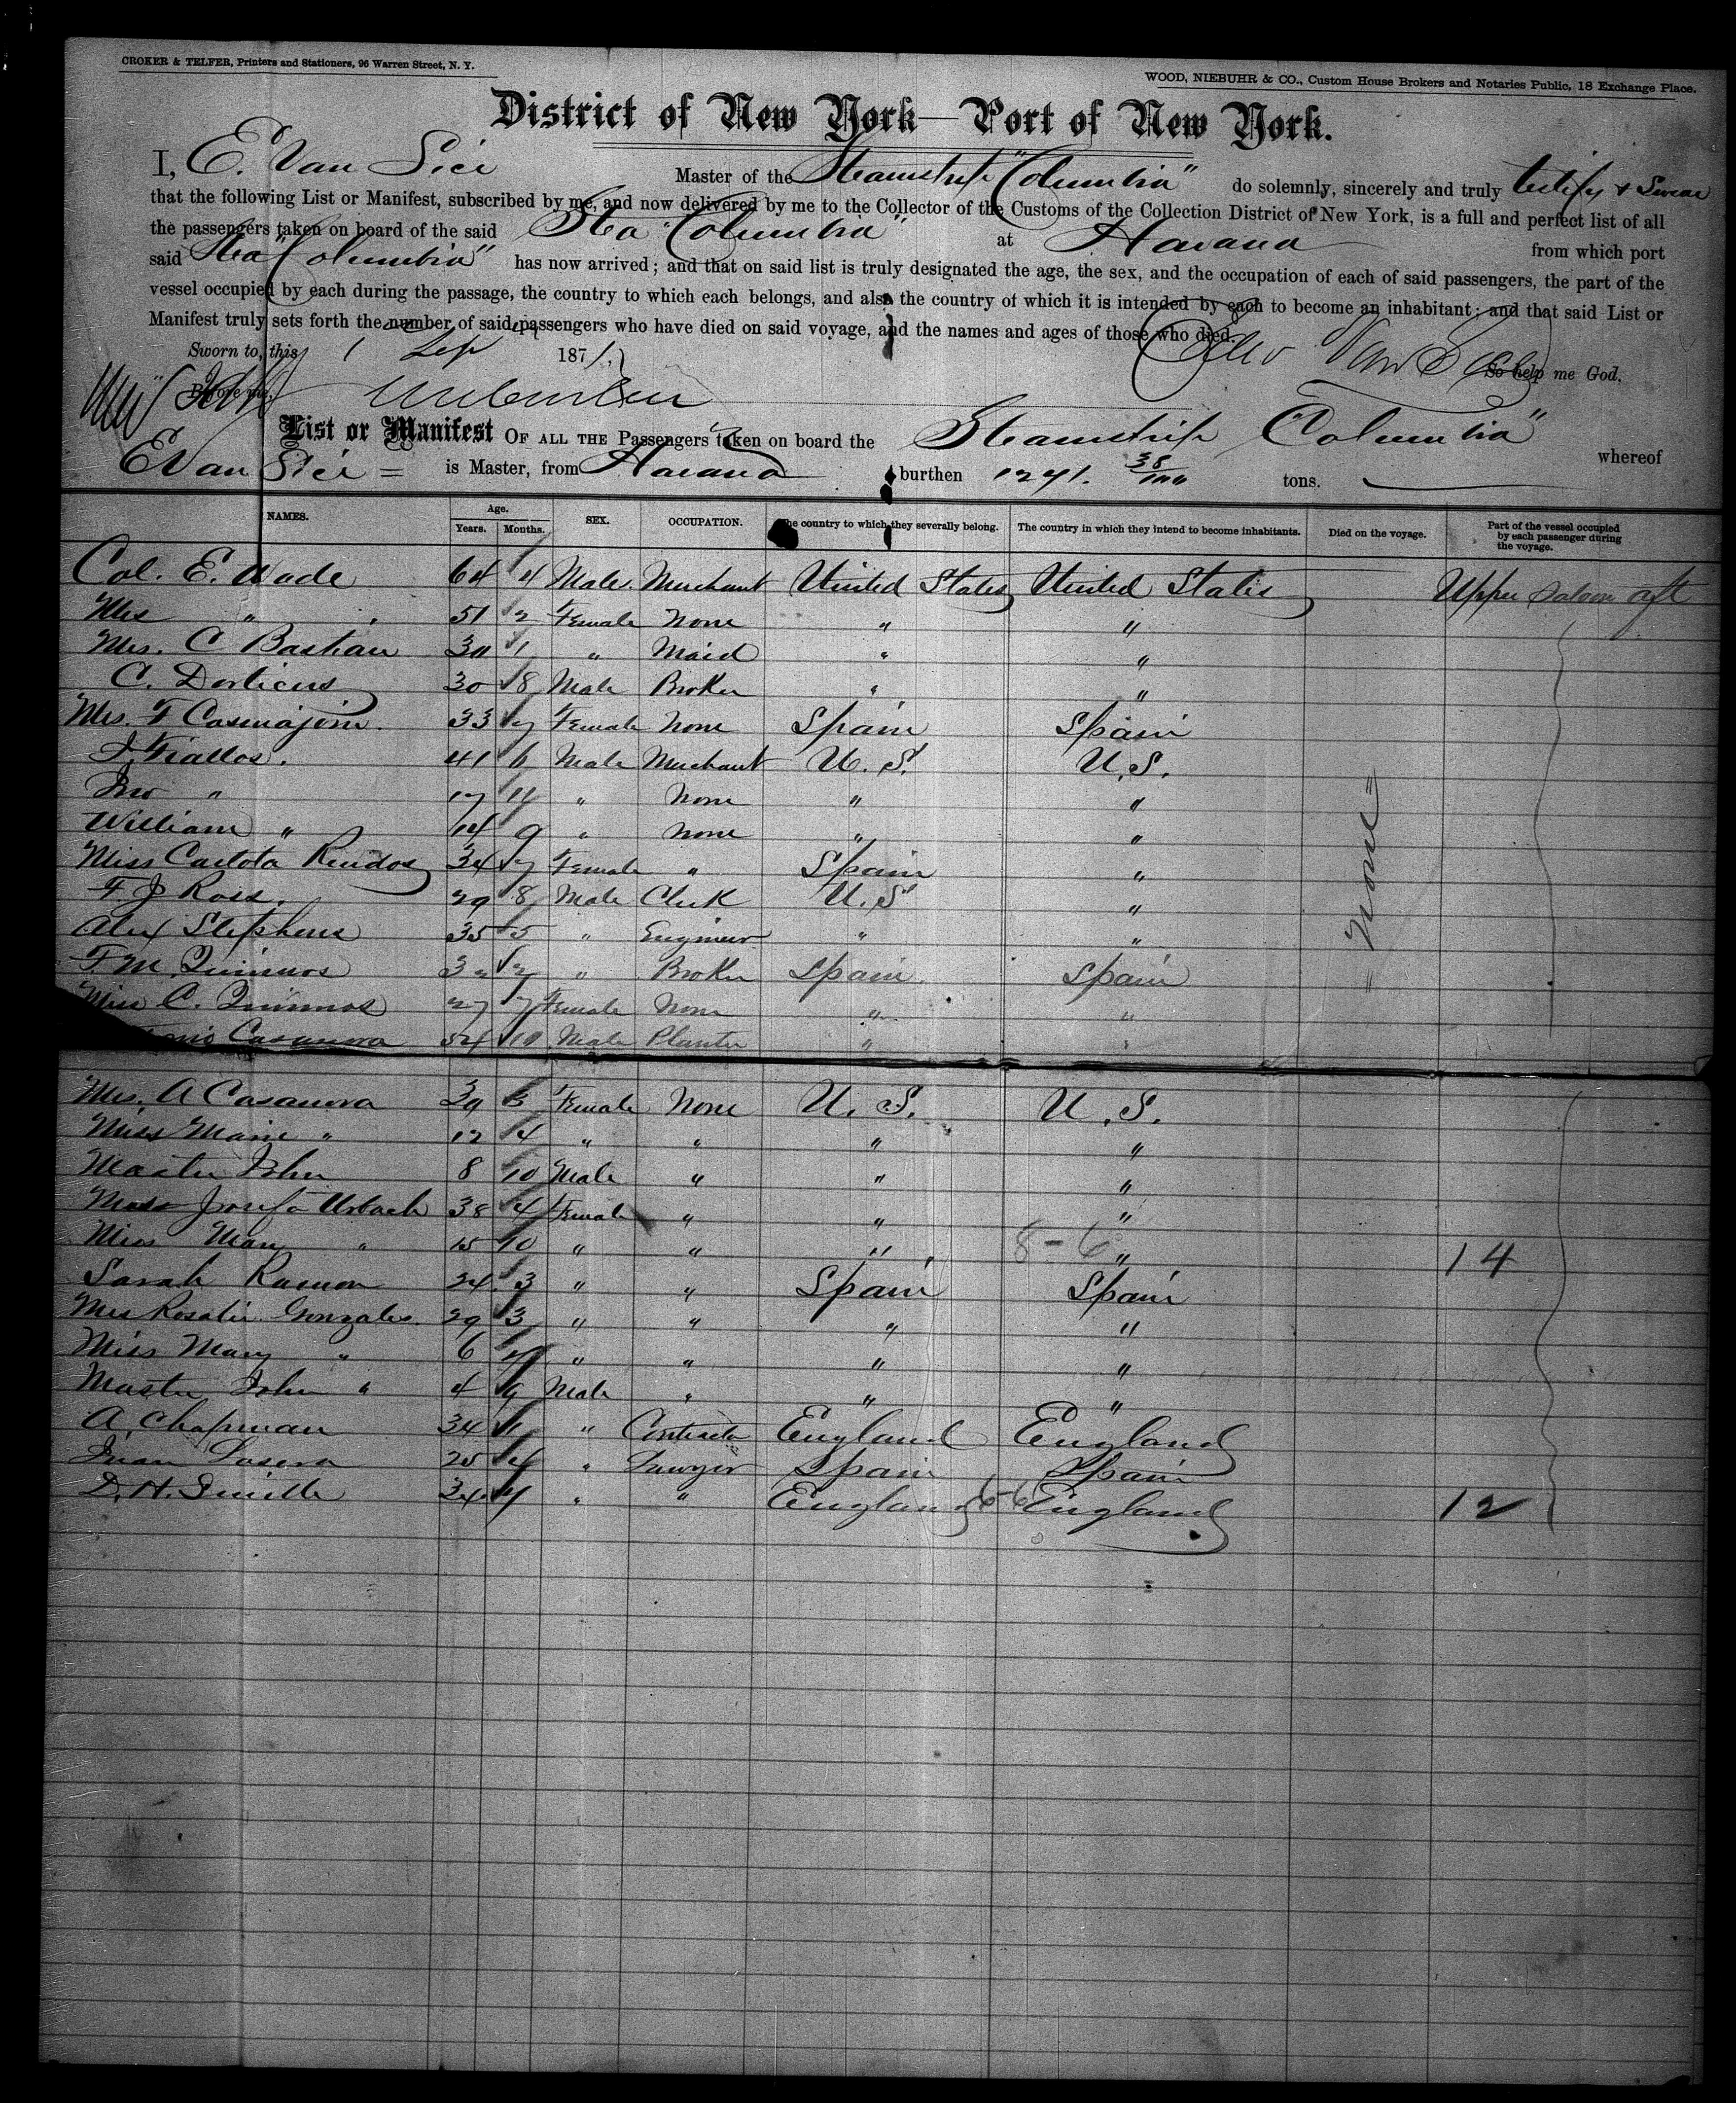 CROKER & TELFER, Printers and Stationers, 96 Warren Street, N. Y.
WOOD, NIEBUHR & CO., Custom House Brokers and Notaries Public, 18 Exchange Place.
District of New York—Port of New York.
I, E. Van Sice Master of the Steamship "Columbia" do solemnly, sincerely and truly testify & Swear
that the following List or Manifest, subscribed by me, and now delivered by me to the Collector of the Customs of the Collection District of New York, is a full and perfect list of all
the passengers taken on board of the said Stea "Columbia" at Havana from which port
said Stea "Columbia" has now arrived; and that on said list is truly designated the age, the sex, and the occupation of each of said passengers, the part of the
vessel occupied by each during the passage, the country to which each belongs, and also the country of which it is intended by each to become an inhabitant; and that said List or
Manifest truly sets forth the number of said passengers who have died on said voyage, and the names and ages of those who died.
Sworn to, this 1 Sep 1871. Van Sice So help me God.
Before me,
List or Manifest OF ALL THE Passengers taken on board the Steamship Columbia" whereof
E Van Sice = is Master, from Havana burthen 1241. 38/100 tons.
NAMES. Age. Years. Months. SEX. OCCUPATION. The country to which they severally belong. The country in which they intend to become inhabitants. Died on the voyage. Part of the vessel occupied by each passenger during the voyage.
Col. E. Wade 64 4 Male Merchant United States United States Upper Saloon aft
Mrs " 51 2 Female None " "
Mrs. C Bastian 30 1 " Maid " "
C. Dorticus 30 8 Male Broker " "
Mrs. F Casmajoin 33 Female None Spain Spain
J. Fiallos. 41 6 Male Merchant U. S. U. S.
Jno " 17 11 " None " "
William " 14 9 " None " "
Miss Carlota Female " Spain "
F J Ross. 29 8 Male Clerk U. S "
Alex Stephens 35 5 " Engineer " "
F. M. " Broker Spain Spain
Miss C. 27 7 Female None " "
Casanova 54 10 Male Planter " "
= None =
Mrs. A Casanova 39 5 Female None U. S. U. S.
Miss Marie " 12 4 " " " "
Master John 8 10 Male " " "
Josefa 38 4 Female " " "
Miss Mary " 15 10 " " " 8-6 " 14
Sarah Ramon 24 3 " " Spain Spain
Mrs Rosalie Gonzales. 29 3 " " " "
Miss Mary " 6 " " " "
Master John " 4 9 Male " " "
A. Chapman 34 1 " Contractor England England
Juan 25 4 " Lawyer Spain Spain
D. H. 34 4 " " England 6-6 England 12